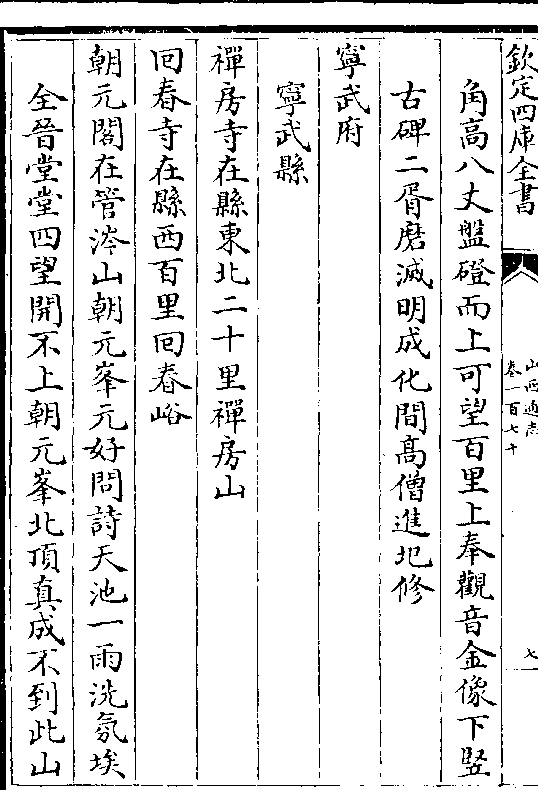 欽定四庫全書
山西通志
卷一百七十
七
角高八丈盤磴而上可望百里上奉觀音金像下竪
古碑二胥磨滅明成化間髙僧進圯修
寧武府
寧武縣
禪房寺在縣東北二十里禪房山
囘春寺在縣西百里囘春峪
朝元閣在管涔山朝元峯元好問詩天池一雨洗氛埃
全晉堂堂四望開不上朝元峯北頂真成不到此山